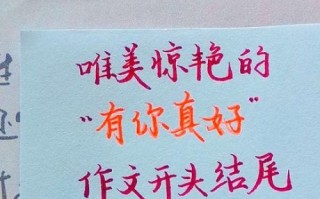 唯美惊艳的
“有你真好”
作文开头结尾